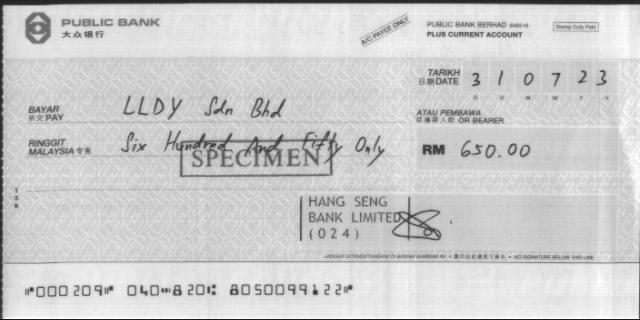 PUBLIC BANK
大众银行
A/C PAYEE ONLY
PUBLIC BANK BERHAD
PLUS CURRENT ACCOUNT
Stamp Duty Paid
TARIKH
日期 DATE 3 1 0 7 2 3
D D M M Y Y
BAYAR
祈交 PAY LLDY Sdn Bhd
ATAU PEMBAWA
OR BEARER
RINGGIT
MALAYSIA Six Hundred And Fifty Only
SPECIMEN
RM 650.00
HANG SENG
BANK LIMITED
(024)
JANGAN TANDATANGAN DI BAWAH GARISAN INI • NO SIGNATURE BELOW THIS LINE
⑈000209⑈ 040⑉820⑆ 8050099122⑈